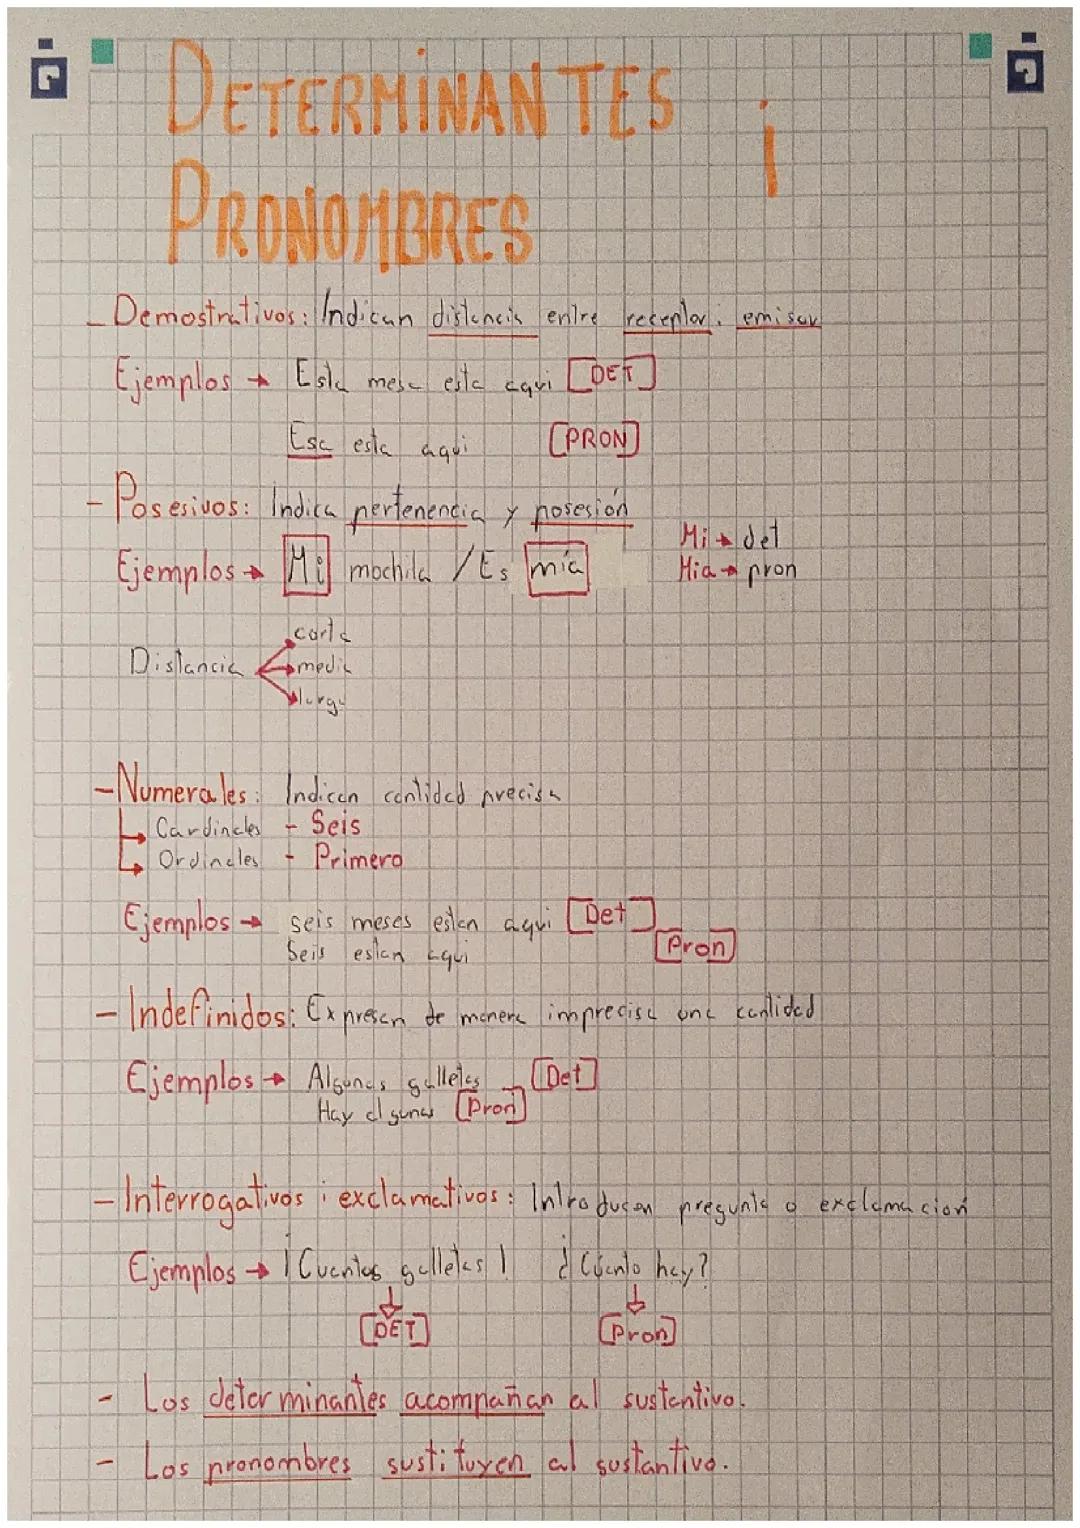 DETERMINANTES i
PRONOMBRES
- Demostrativos: Indican distancia entre receptor i emisor
Ejemplos → Esta mesa esta aqui [DET]
Esa esta aqui [PRON]
- Posesivos: Indica pertenencia y posesión
Mi → det
Ejemplos → Mi mochila / Es mía
Mia → pron
Distancia
corta
media
larga
- Numerales: Indican cantidad precisa
Cardinales - Seis
Ordinales - Primero
Ejemplos → seis meses estan aqui [Det]
Seis estan aqui [Pron]
- Indefinidos: Expresan de manera imprecisa una cantidad
Ejemplos → Algunas galletas [Det]
Hay algunas [Pron]
- Interrogativos i exclamativos: Introducen pregunta o exclamación
Ejemplos → ¡Cuantas galletas! ¿Cúanto hay?
[DET] [Pron]
- Los determinantes acompañan al sustantivo.
- Los pronombres sustituyen al sustantivo.